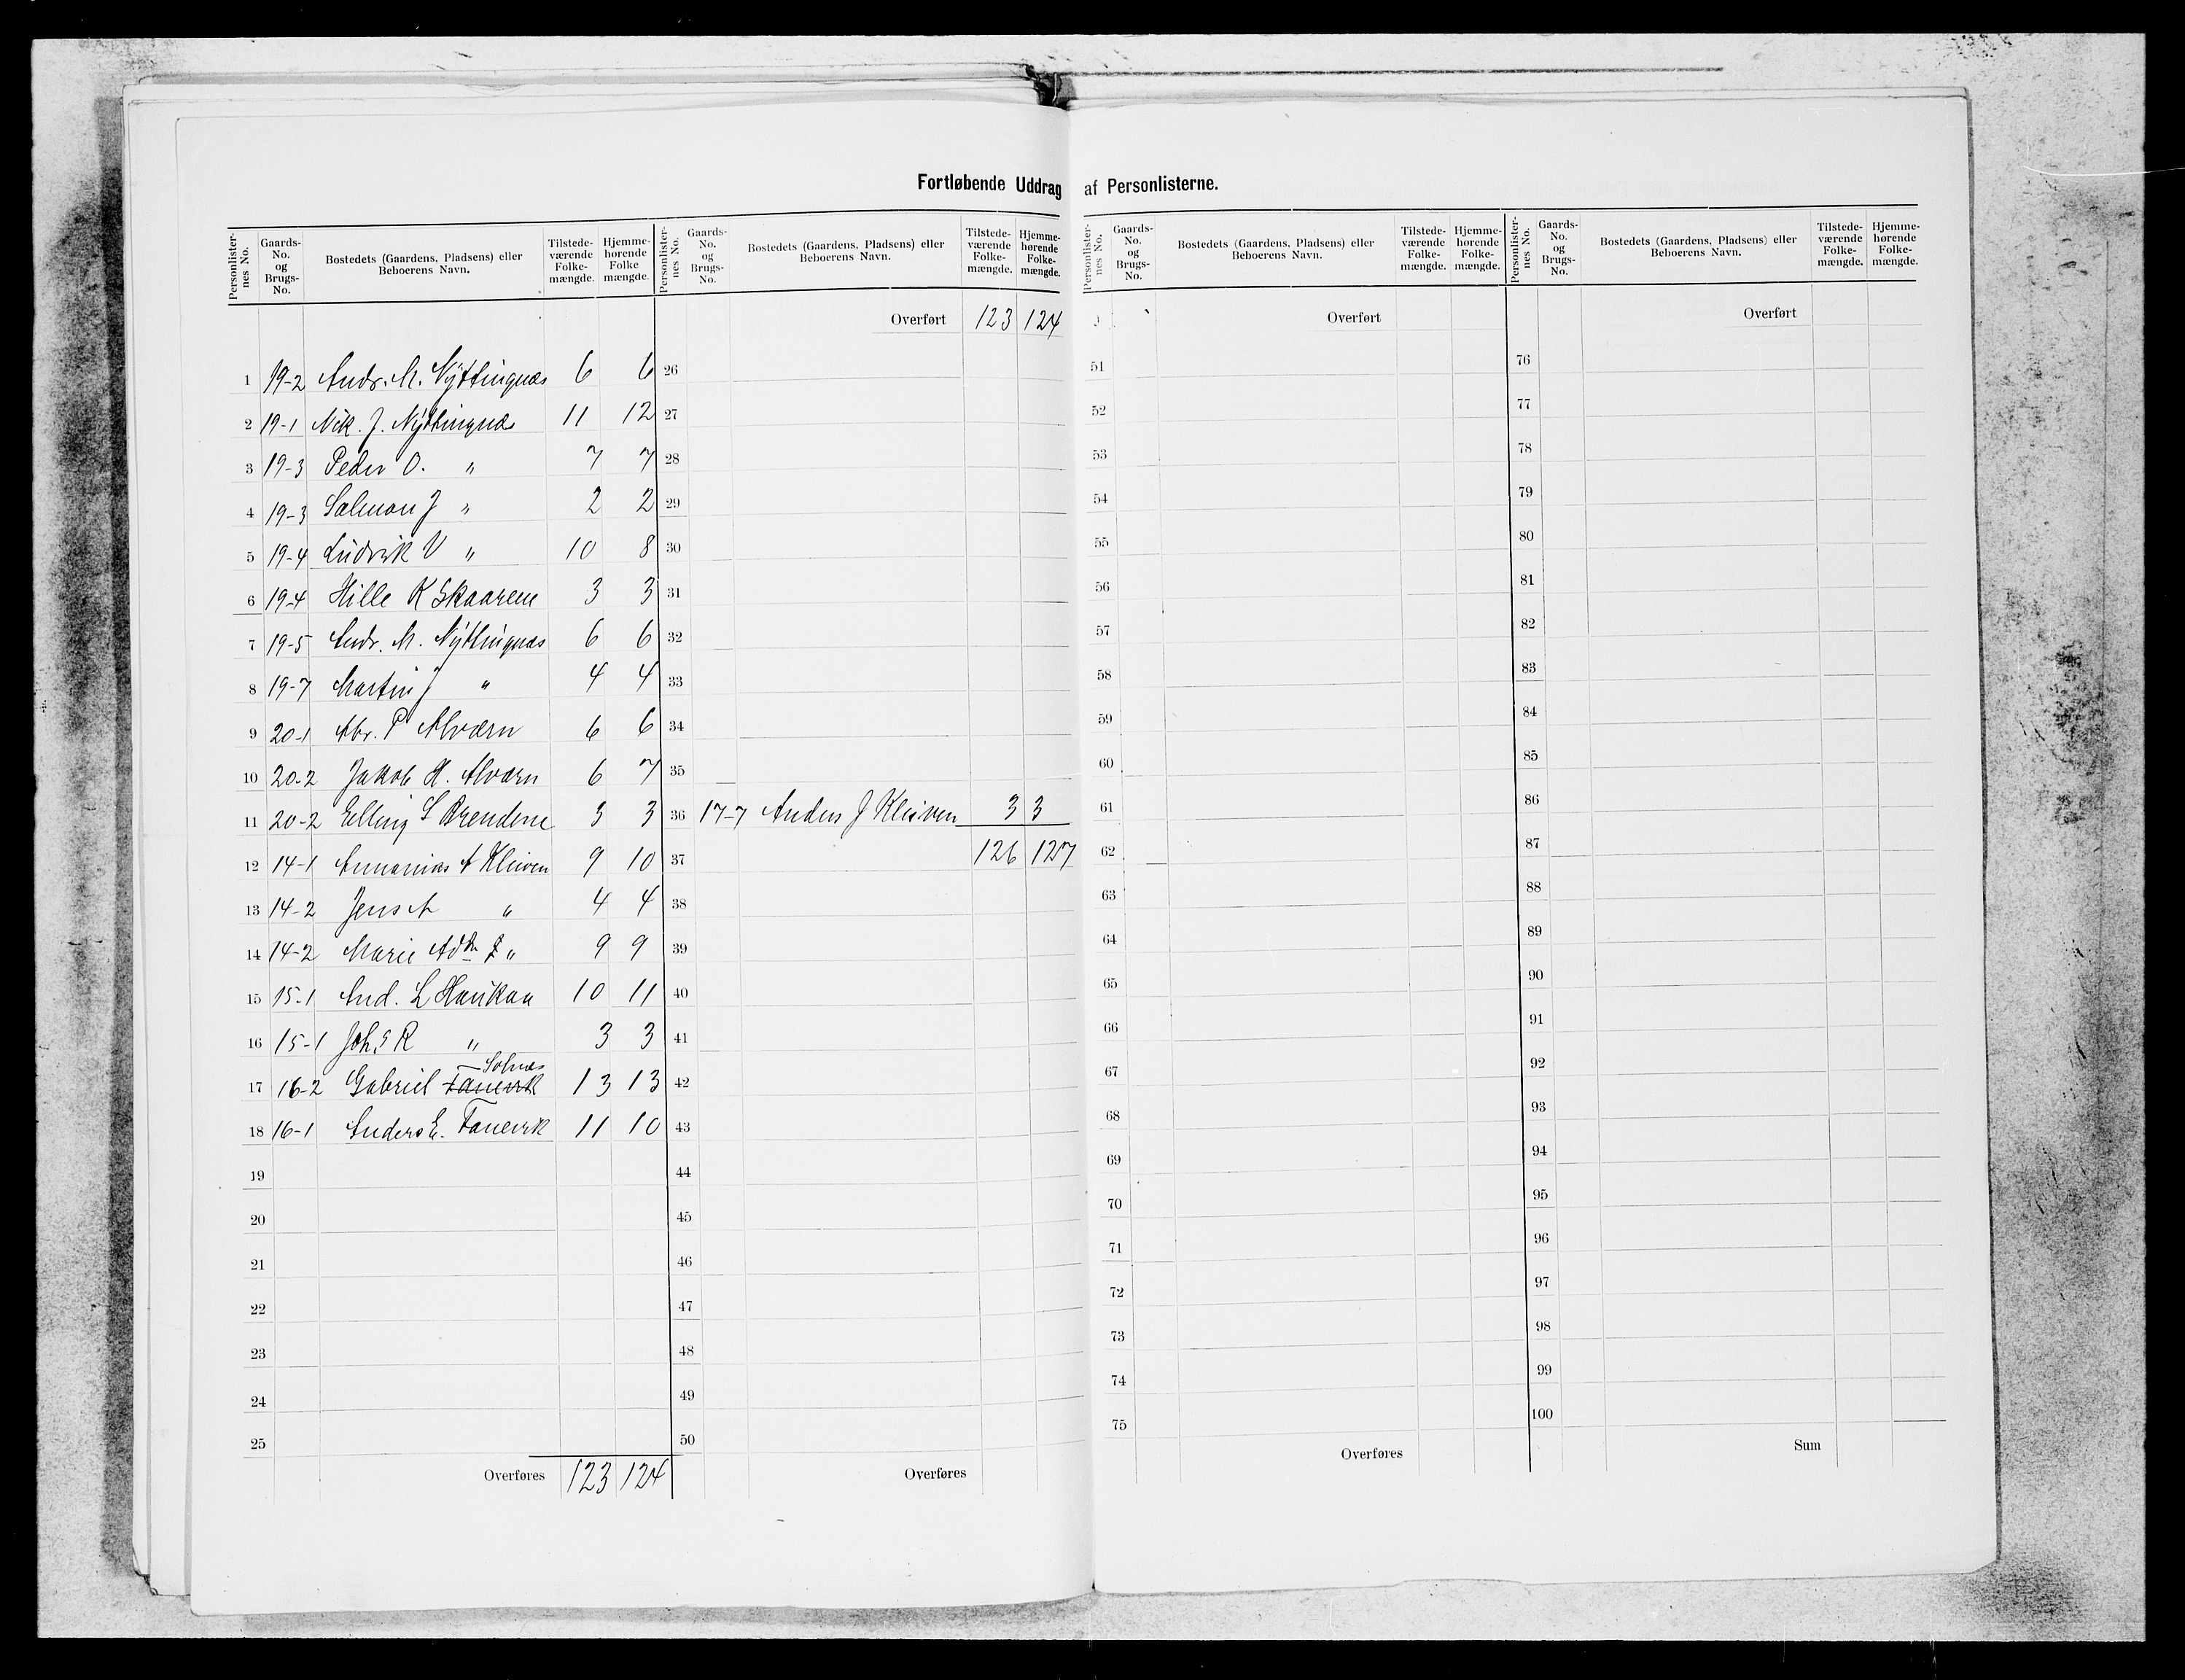 Fortløbende Uddrag af Personlisterne.
Personlister-nes No. | Gaards-No. og Brugs-No. | Bostedets (Gaardens, Pladsens) eller Beboerens Navn. | Tilstede-værende Folke-mængde. | Hjemme-hørende Folke mængde.
1 19-2 Andr. M. Nyttingnæs 6 6
2 19-1 Nik. J. Nyttingnæs 11 12
3 19-3 Peder O. " 7 7
4 19-3 Salmon J " 2 2
5 19-4 Ludvik V " 10 8
6 19-4 Hille K Skaarene 3 3
7 19-5 Andr. M. Nyttingnæs 6 6
8 19-7 Martin J " 4 4
9 20-1 Abr. P Alværn 6 6
10 20-2 Jakob H. Alværn 6 7
11 20-2 Elling S 3 3
12 14-1 Annanias A Kleiven 9 10
13 14-2 Jens A " 4 4
14 14-2 Marie " 9 9
15 15-1 And. L Haukaa 10 11
16 15-1 Johs R " 3 3
Solnæs
17 16-2 Gabriel Fanevik 13 13
18 16-1 Anders E. Fanevik 11 10
19
20
21
22
23
24
25
Overføres 123 124
Personlister-nes No. | Gaards-No. og Brugs-No. | Bostedets (Gaardens, Pladsens) eller Beboerens Navn. | Tilstede-værende Folke-mængde. | Hjemme-hørende Folke-mængde.
Overført 123 124
26
27
28
29
30
31
32
33
34
35
36 17-7 Anders J Kleiven 3 3
37 126 127
38
39
40
41
42
43
44
45
46
47
48
49
50
Overføres
Personlister-nes No. | Gaards-No. og Brugs-No. | Bostedets (Gaardens, Pladsens) eller Beboerens Navn. | Tilstede-værende Folke-mængde. | Hjemme-hørende Folke-mængde.
Overført
51
52
53
54
55
56
57
58
59
60
61
62
63
64
65
66
67
68
69
70
71
72
73
74
75
Overføres
Personlister-nes No. | Gaards-No. og Brugs-No. | Bostedets (Gaardens, Pladsens) eller Beboerens Navn. | Tilstede-værende Folke-mængde. | Hjemme-hørende Folke-mængde.
Overført
76
77
78
79
80
81
82
83
84
85
86
87
88
89
90
91
92
93
94
95
96
97
98
99
100
Sum